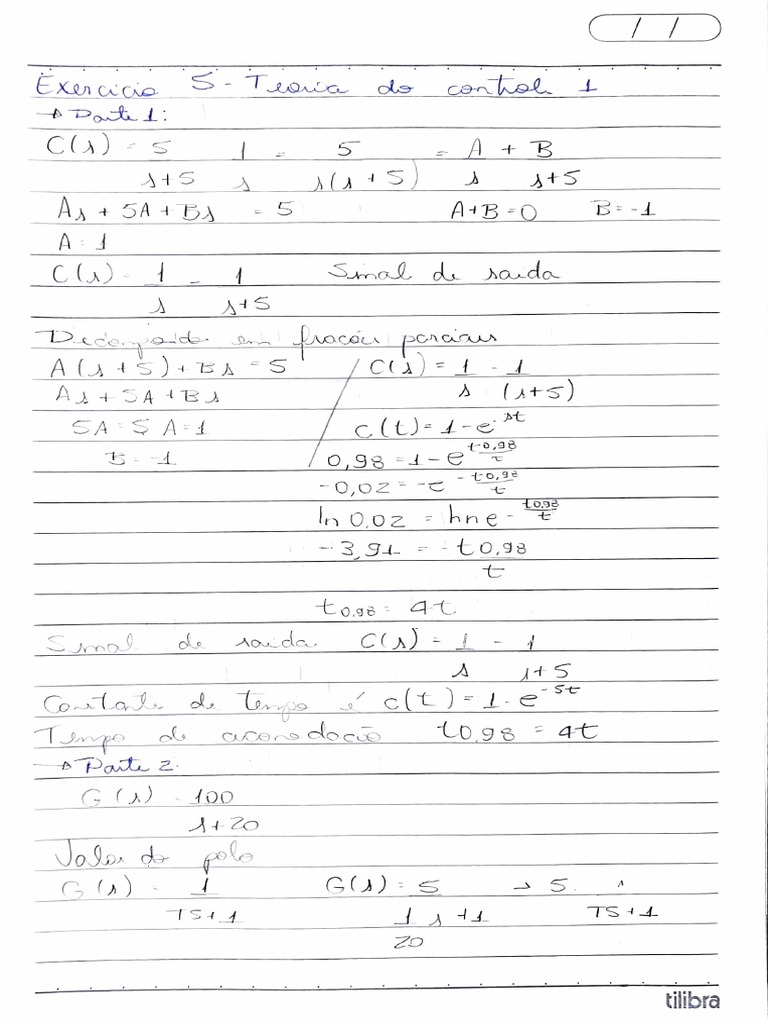 / /
Exercício 5 - Teoria do controle 1
→ Parte 1:
C(s) = 5 1 = 5 = A + B
s+5 s s(s+5) s s+5
As + 5A + Bs = 5 A+B=0 B=-1
A = 1
C(s) - 1 - 1 Sinal de saída
s s+5
Decompondo em frações parciais
A(s+5)+Bs = 5 C(s) = 1 - 1
As + 5A + Bs s (s+5)
5A = 5 A=1 c(t) = 1 - e^-5t
B = -1 0,98 = 1 - e^-t0,98/τ
-0,02 = -e^-t0,98/t
ln 0,02 = lne^-t0,98/t
-3,91 = -t0,98
t
t0,98 = 4t
Sinal de saída C(s) = 1 - 1
s s+5
Constante de tempo é c(t) = 1 - e^-5t
Tempo de acomodação t0,98 = 4t
→ Parte 2.
G(s) = 100
s+20
Valor do polo
G(s) = 1 G(s) = 5 → 5. 1
TS+1 1 s +1 TS+1
20
tilibra